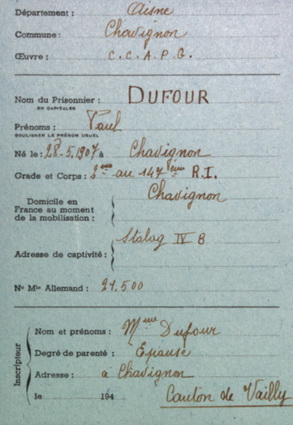 Département : Aisne
Commune : Chavignon
Œuvre : C.C.A.P.G.
Nom du Prisonnier : DUFOUR
EN CAPITALES
Prénoms : Paul
SOULIGNER LE PRÉNOM USUEL
Né le : 28.5.1907 à Chavignon
Grade et Corps : 2ème au 147ème R.I.
Domicile en France au moment de la mobilisation : Chavignon
Adresse de captivité : Stalag IV B
No Mle Allemand : 21.500
Inscripteur
Nom et prénoms : Mme Dufour
Degré de parenté : Epouse
Adresse : a Chavignon
le 194 Canton de Vailly